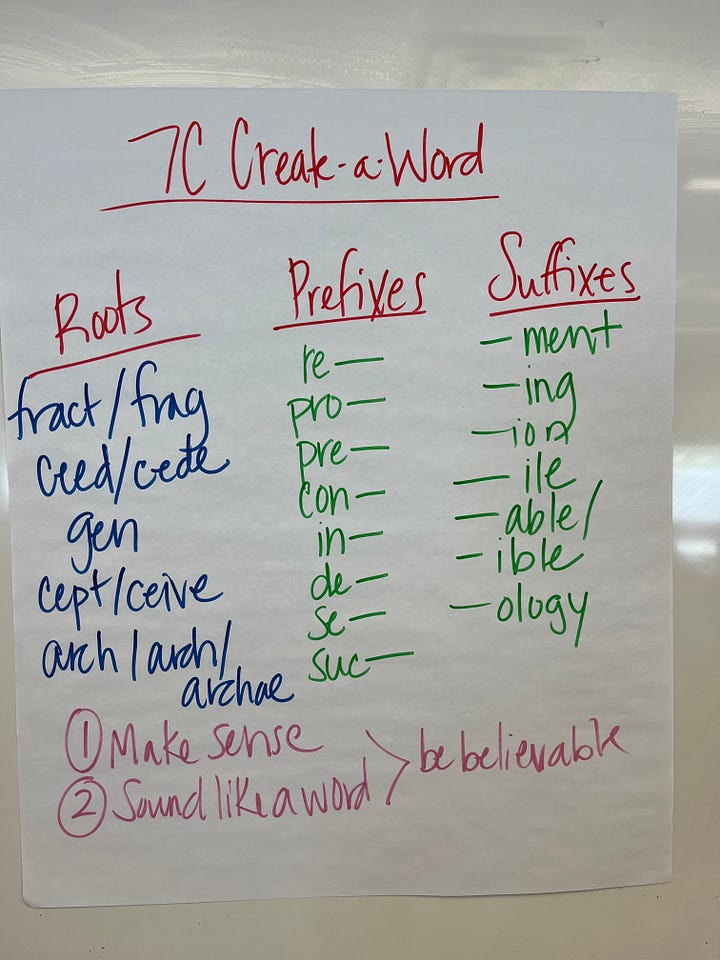 7C Create-a-Word
Roots
fract/frag
ceed/cede
gen
cept/ceive
arch/arch/
archae
Prefixes
re—
pro—
pre—
con—
in—
de—
se—
suc—
Suffixes
—ment
—ing
—ion
—ile
—able/
—ible
—ology
① Make sense
② Sound like a word > be believable